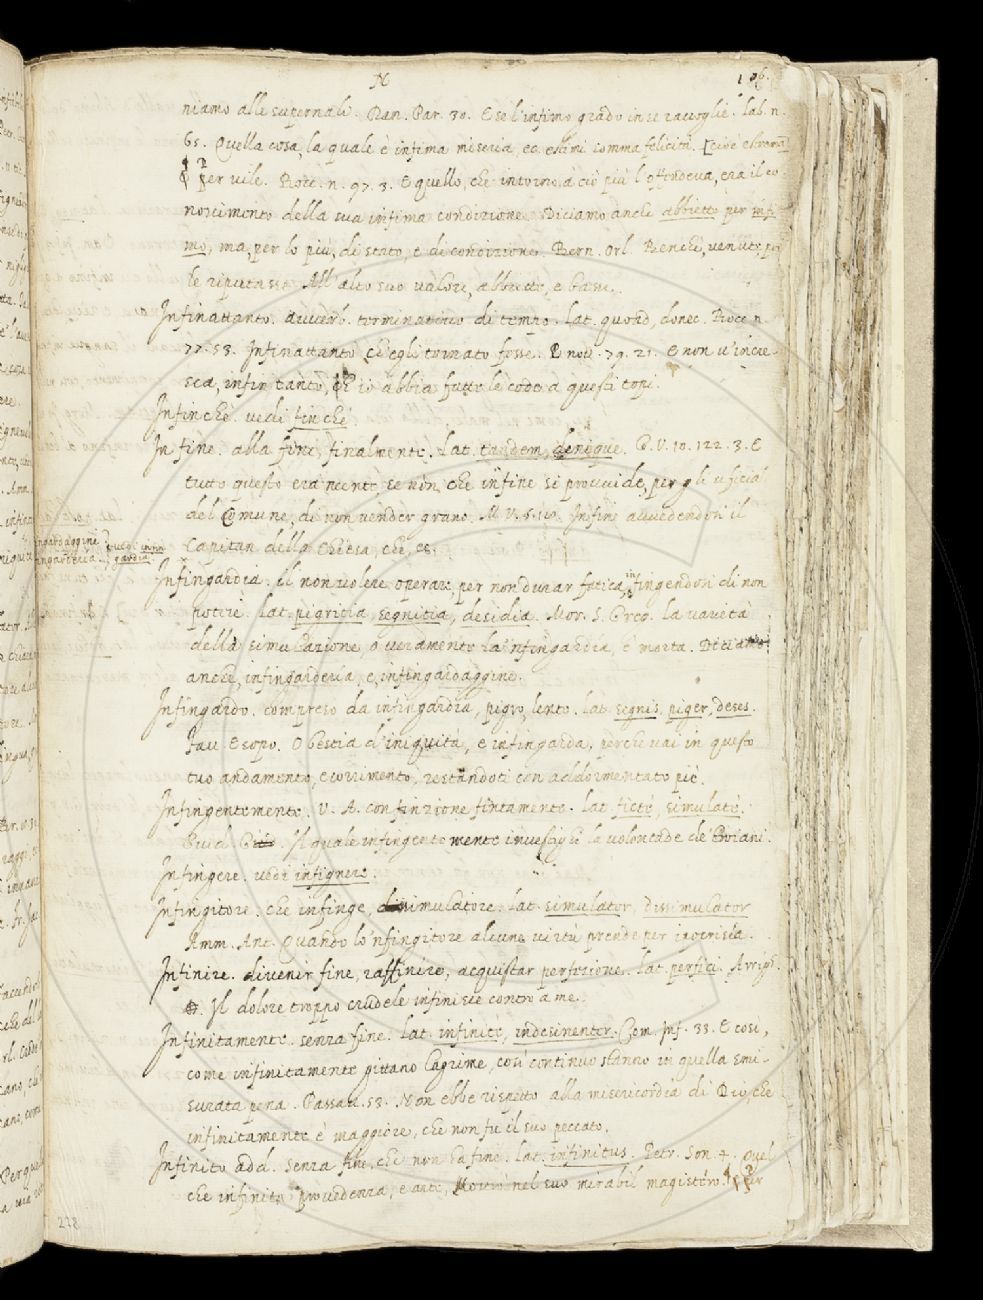 N
niamo alle supernali. Dan. Par. 30. E se l'infimo grado in se raccoglie. Lab. n.
65. Quella cosa, la quale è infima miseria, ec. somma felicità.
per vile. Bocc. n. 97. 3. E quello, che intorno a ciò più l'offendeva, era il co-
noscimento della sua infima condizione. Diciamo anche abbietto per infi-
mo, ma, per lo più, di stato, e di condizione. Bern. Orl. Benchè, venute, poi
le reputasse All'alto suo valore, abbiette, e basse.
Infinattanto. avverb. terminativo di tempo. Lat. quoad, donec. Bocc. n.
77. 53. Infinattanto ch'egli tornato fosse. E nov. 79. 21. E non v'incre-
sca, infin tanto, ch'io abbia fatte le code a questi topi.
Infinchè. vedi finchè
In fine. alla fine, finalmente. Lat. tandem, denique. G. V. 10. 122. 3. E
tutto questo era neente se non, che infine si provvide, per gli uficial
del Comune, di non vender grano. M. V. 5. Infine avvedendosi il
Capitan della Chiesa, che, ec.
ngardaggine
ngarderia
vedi infin
gardia
Infingardia. il non volere operare, per non durar fatica, infingendosi di non
potere. Lat. pigritia, segnitia, desidia. Mor. S. Greg. La vanità
della simulazione, o veramente la 'nfingardia, è morta. Diciamo
anche, infingarderia, e, infingardaggine.
Infingardo. compreso da infingardia, pigro, lento. Lat. segnis, piger, deses.
Fav. Esopo. O bestia d'iniquità, e infingarda, perchè vai in questo
tuo andamento, e corrimento, restandoti con addormentato piè.
Infingentemente. V. A. con finzione fintamente. Lat. fictè, simulatè.
Guid. G. Il quale infingentemente investigò la volontade de' Troiani.
Infingere. vedi infignere.
Infingitore. che infinge, simulatore. Lat. simulator, dissimulator
Amm. Ant. Quando lo 'nfingitore alcuna virtù prende per ipocrisia.
Infinire. divenir fine, raffinire, acquistar perfezione. Lat. perfici. Arrigh.
Il dolore troppo crudele infinisce contro a me.
Infinitamente. senza fine. Lat. infinitè, indesinenter. Com. Inf. 33. E così,
come infinitamente gittano lagrime, così continuo stanno in quella smi-
surata pena. Passav. 53. Non ebbe rispetto alla misericordia di Dio, che
infinitamente è maggiore, che non fu il suo peccato.
Infinito add. senza fine, che non ha fine. Lat. infinitus. Petr. Son. 4. Quel
che infinita provedenza, e arte, Mostrò nel suo mirabil magistero. Per
228